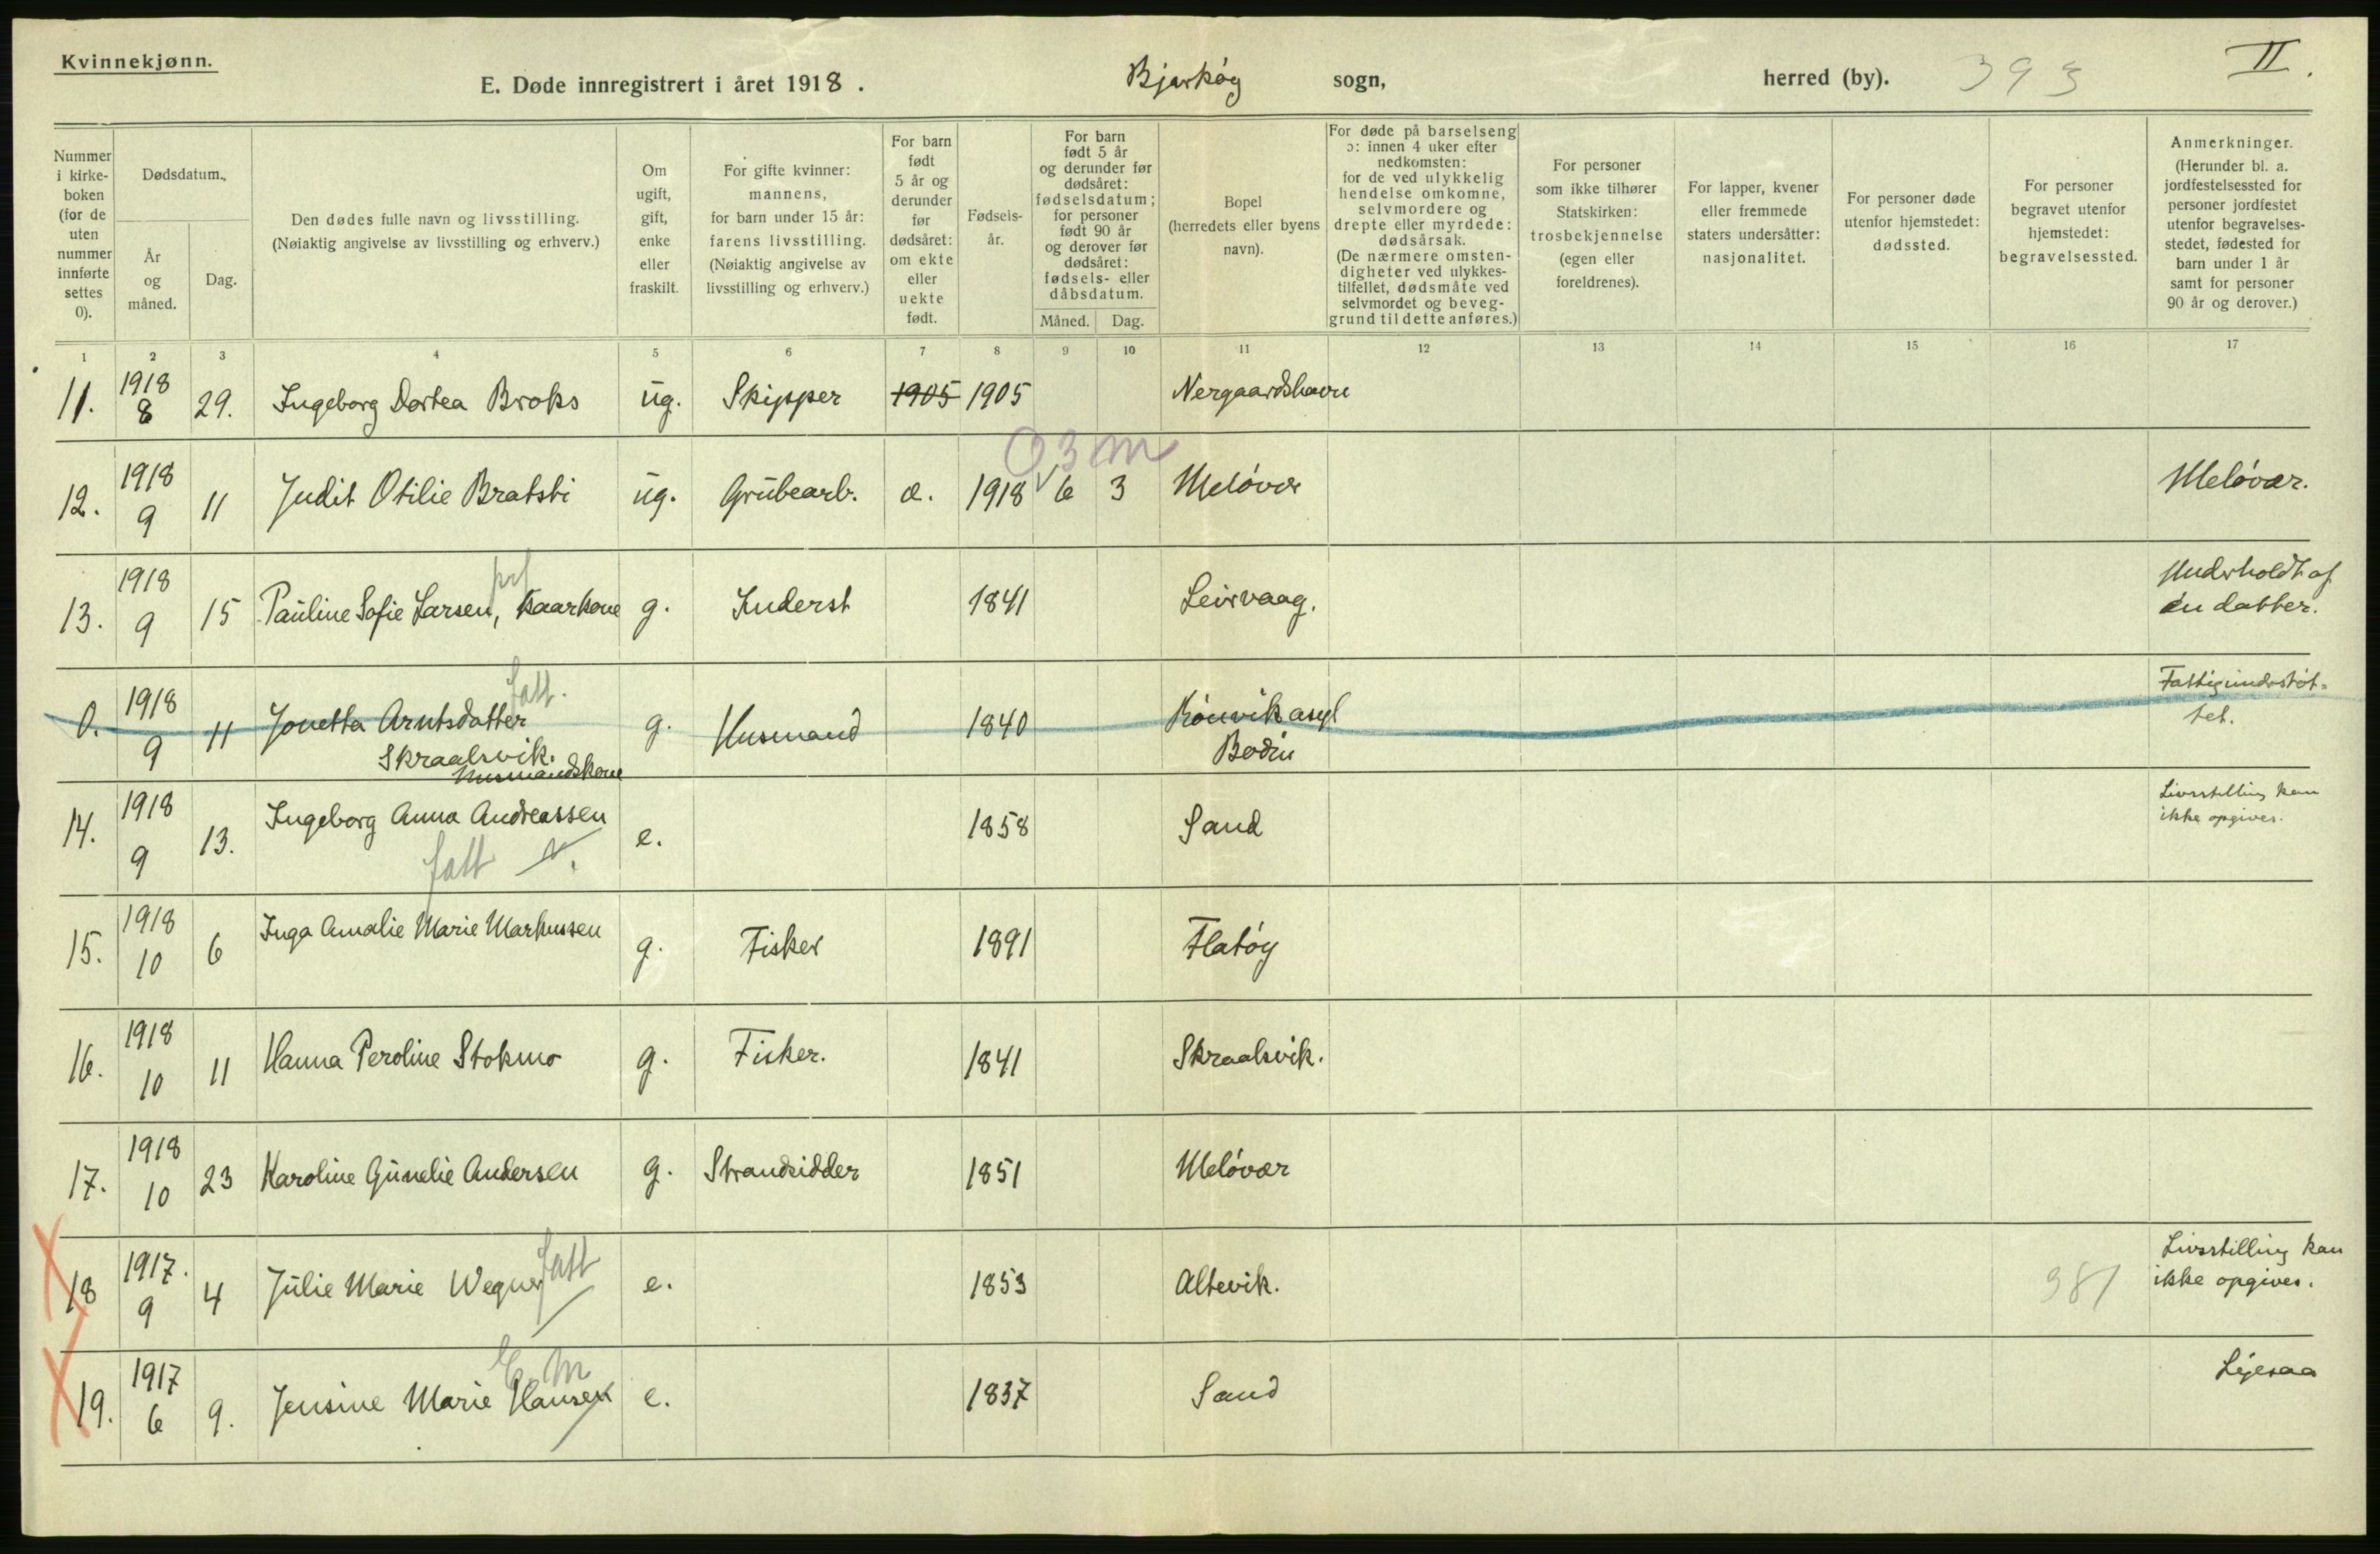 Kvinnekjønn.
II.
E. Døde innregistrert i året 1918. Bjarkøy sogn, herred (by). 393
Nummer i kirkeboken (for de uten nummer innførte settes 0).
Dødsdatum.
År og måned.
Dag.
Den dødes fulle navn og livsstilling. (Nøiaktig angivelse av livsstilling og erhverv.)
Om ugift, gift, enke eller fraskilt.
For gifte kvinner: mannens, for barn under 15 år: farens livsstilling. (Nøiaktig angivelse av livsstilling og erhverv.)
For barn født 5 år og derunder før dødsåret: om ekte eller uekte født.
Fødsels-år.
For barn født 5 år og derunder før dødsåret: fødselsdatum; for personer født 90 år og derover før dødsåret: fødsels- eller dåbsdatum.
Måned. Dag.
Bopel (herredets eller byens navn).
For døde på barselseng ɔ: innen 4 uker efter nedkomsten: for de ved ulykkelig hendelse omkomne, selvmordere og drepte eller myrdede: dødsårsak. (De nærmere omstendigheter ved ulykkestilfellet, dødsmåte ved selvmordet og beveggrund til dette anføres.)
For personer som ikke tilhører Statskirken: trosbekjennelse (egen eller foreldrenes).
For lapper, kvener eller fremmede staters undersåtter: nasjonalitet.
For personer døde utenfor hjemstedet: dødssted.
For personer begravet utenfor hjemstedet: begravelsessted.
Anmerkninger. (Herunder bl. a. jordfestelsessted for personer jordfestet utenfor begravelsesstedet, fødested for barn under 1 år samt for personer 90 år og derover.)
1 2 3 4 5 6 7 8 9 10 11 12 13 14 15 16 17
11. 1918 8 29. Ingeborg Dortea Broks ug. Skipper 1905 1905 Nergaardshavn
03m
12. 1918 9 11 Judit Otilie Bratsti ug. Grubearb. e. 1918 6 3 Meløvær Meløvær.
13. 1918 9 15 Pauline Sofie Larsen, kaarkone g. Inderst 1841 Leirvaag. Underholdt af en datter.
fatt.
0. 1918 9 11 Jonetta Arntsdatter g. Husmand 1840 Rønvik asyl Fattigunderstøt-
Skraalsvik. Bodin tet.
Husmandskone
14. 1918 9 13. Ingeborg Anna Andreassen e. 1858 Sand Livsstilling kan ikke opgives.
fatt
15. 1918 10 6 Inga Amalie Marie Markussen g. Fisker 1891 Flatøy
16. 1918 10 11 Hanna Peroline Stokmo g. Fisker. 1841 Skraalsvik.
17. 1918 10 23 Karoline Gunelie Andersen g. Strandsidder 1851 Meløvær
fatt
18 1917. 9 4 Julie Marie Wegner e. 1853 Altevik. 381 Livsstilling kan ikke opgives.
E. m
19. 1917 6 9. Jensine Marie Hansen e. 1837 Sand